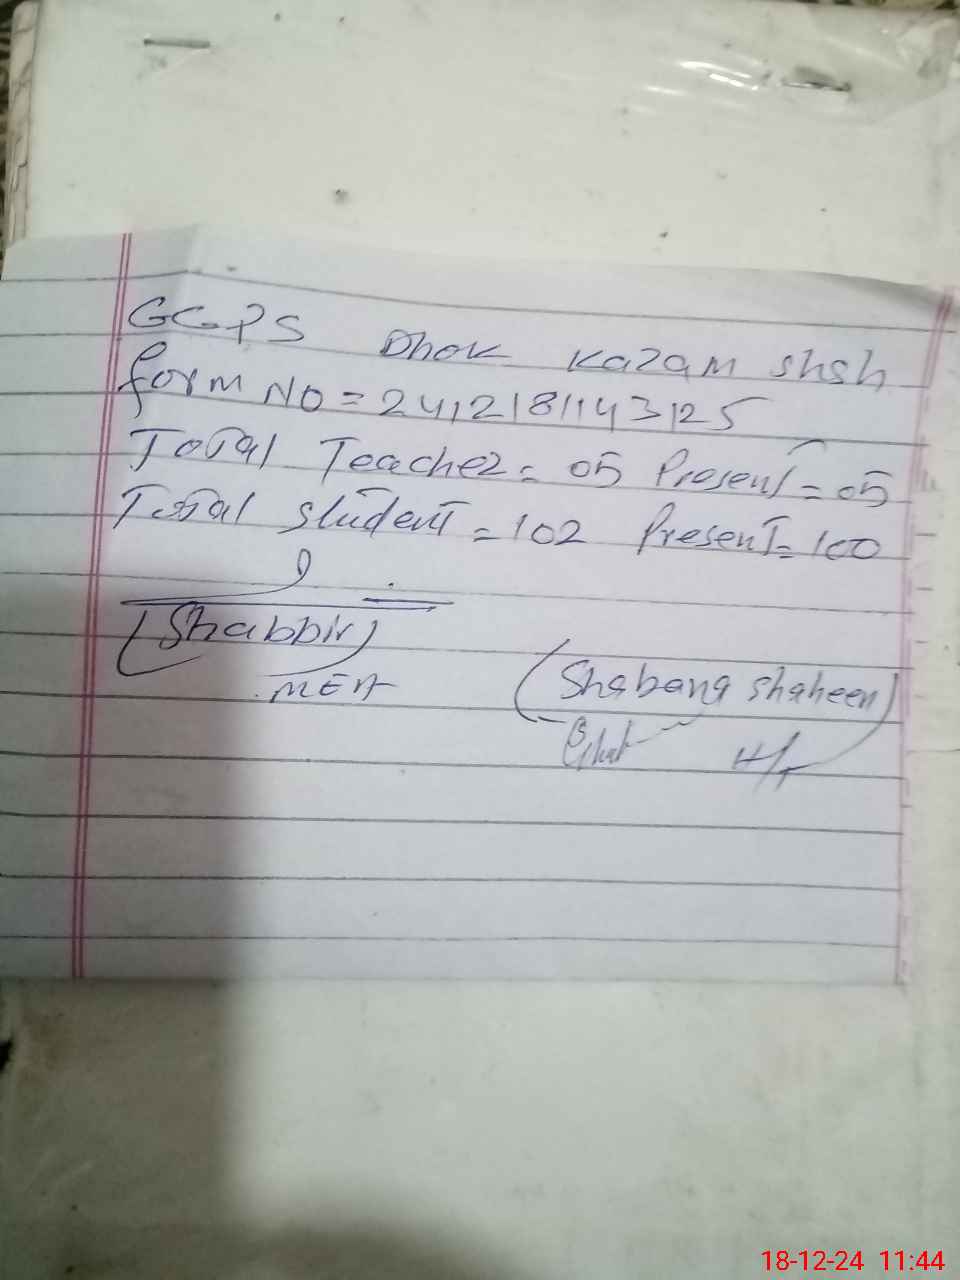 GGPS Dhok Kazam Shah
form NO = 2412181143125
Total Teacher = 05 Present = 05
Total student = 102 Present = 100
(Shabbir)
MEA
(Shabana shaheen)
H/T
18-12-24 11:44